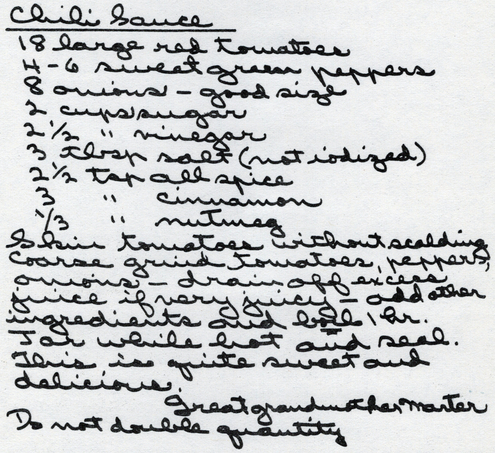 Chili Sauce
18 large red tomatoes
4-6 sweet green peppers
8 onions - good size
2 cups sugar
2 1/2 " vinegar
3 tbsp salt (not iodized)
2 1/2 tsp all spice
3 " cinnamon
1/3 " nutmeg
Skin tomatoes without scalding
Coarse grind tomatoes, peppers,
onions - drain off excess
juice if very juicy - add other
ingredients and boil 1 hr.
Jar while hot and seal.
This is quite sweet and
delicious.
Great grandmother Marter
Do not double quantity